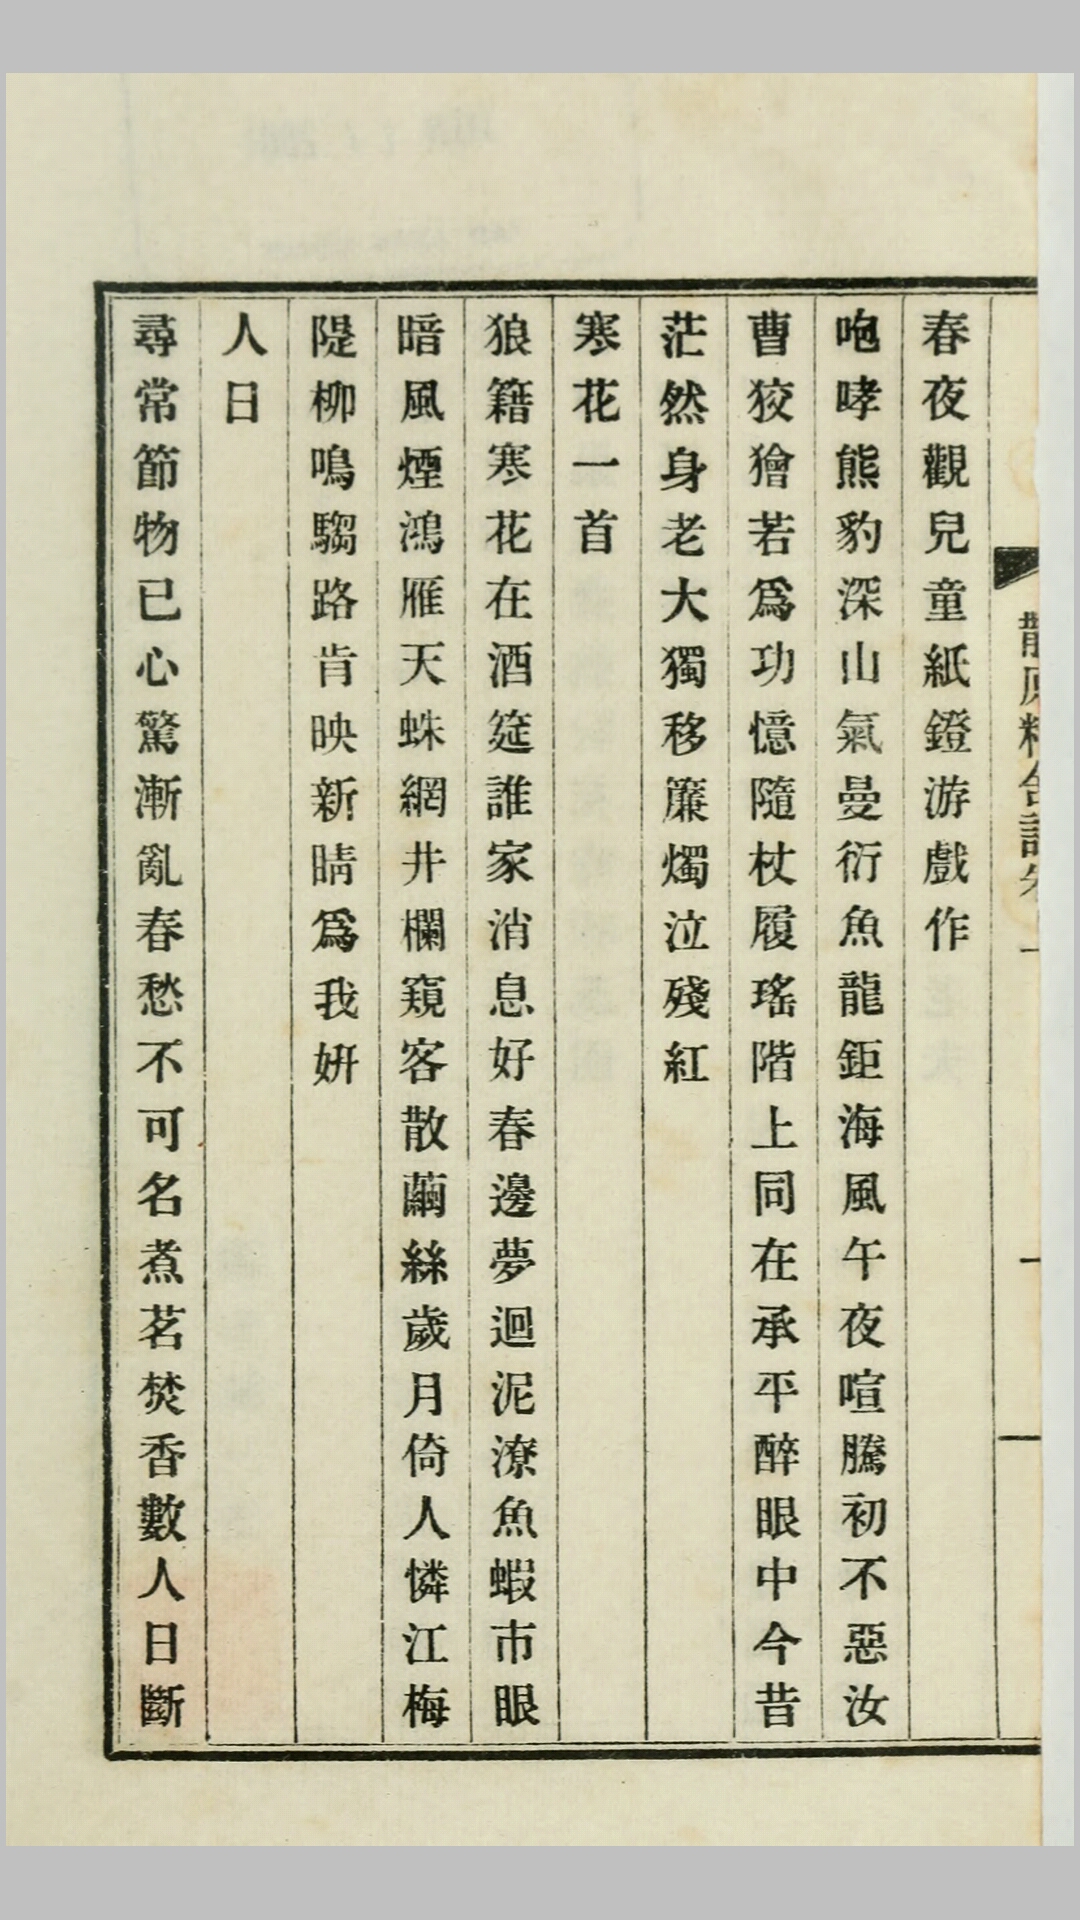 散原精舍詩卷
春夜觀兒童紙鐙游戲作
咆哮熊豹深山氣曼衍魚龍鉅海風午夜喧騰初不惡汝
曹狡獪若爲功憶隨杖履瑤階上同在承平醉眼中今昔
茫然身老大獨移簾燭泣殘紅
寒花一首
狼籍寒花在酒筵誰家消息好春邊夢迴泥潦魚蝦市眼
暗風煙鴻雁天蛛網井欄窺客散繭絲歲月倚人憐江梅
隄柳鳴騶路肯映新晴爲我妍
人日
尋常節物已心驚漸亂春愁不可名煮茗焚香數人日斷